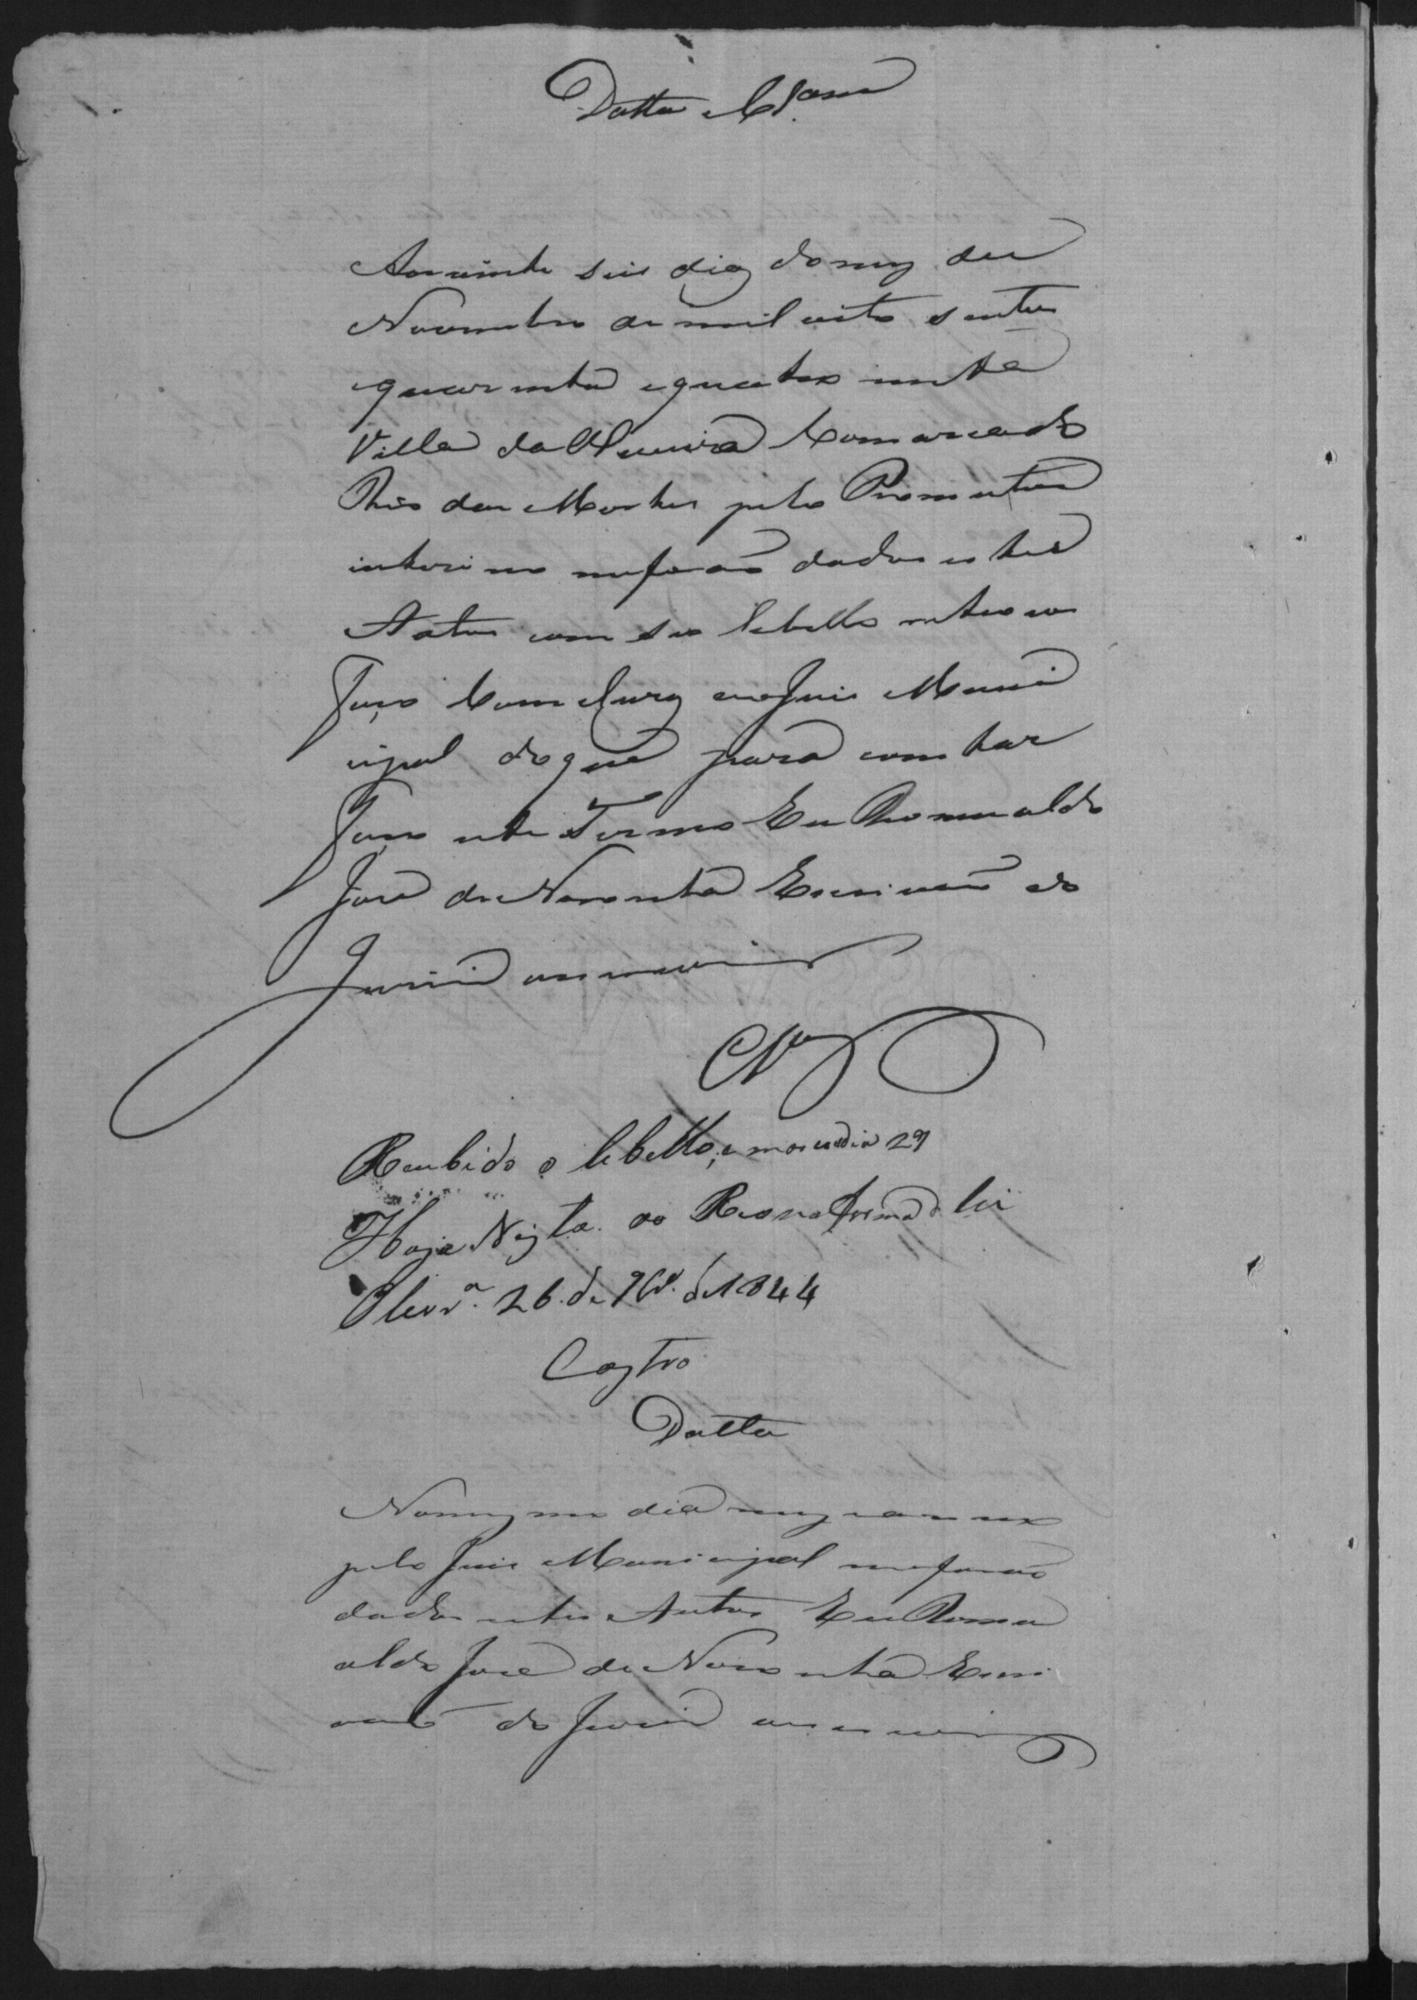 Datta e Clsam
Aos vinte seis dias do mez de
Novembro de mil oito sentos
quarenta e quatro nesta
Villa da Oliveira Comarca do
Rio das Mortes pelo Promotor
interino me forão dados estes
Autos com seu libello
Faço Comclusos ao Juis Muni
cipal do que para constar
Faço este Termo Eu Romualdo
José de Noronha Escrivão do
Jury o escrevi
Clsos
Recebido o libello, e marco dia 29
Haja Vista ao Reo na forma da lei
Olivrª 26 de 9br. de 1844
Castro
Datta
No mesmo dia mez e anno
pelo Juis Municipal me forão
dados estes Autos Eu Romu
aldo José de Noronha Escri
vão do Jury o escrevi